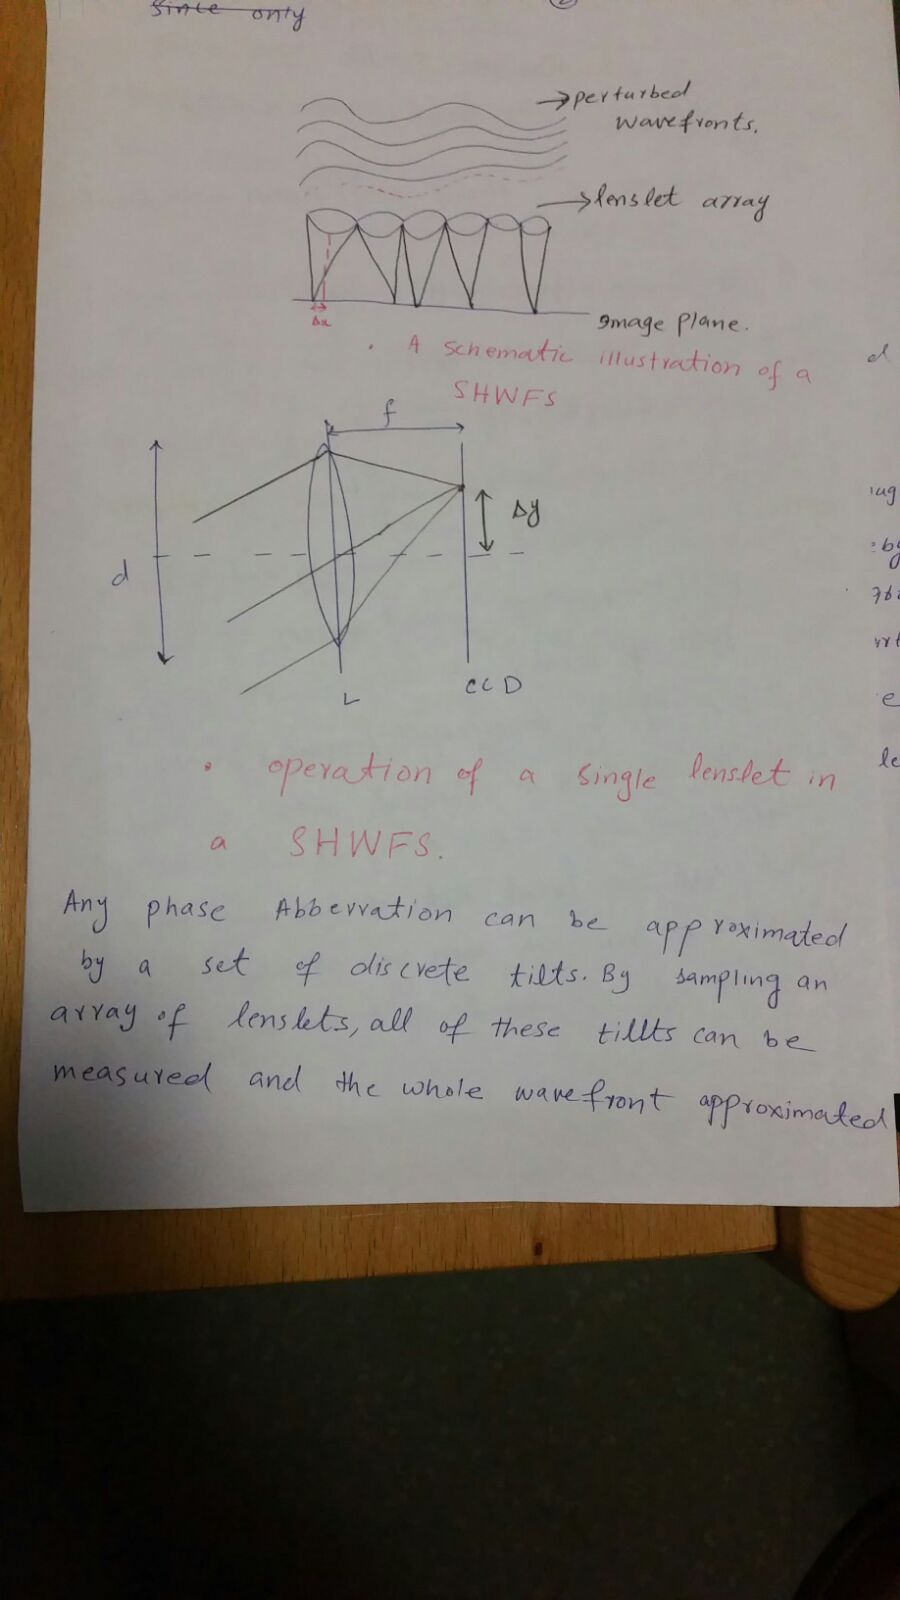 Since only
2
→perturbed
wavefronts.
→lenslet array
Δx
Image plane.
. A schematic illustration of a
SHWFS
f
d
Δy
L
CCD
• operation of a single lenslet in
a SHWFS.
Any phase Abberration can be approximated
by a set of discrete tilts. By sampling an
array of lenslets, all of these tillts can be
measured and the whole wavefront approximated